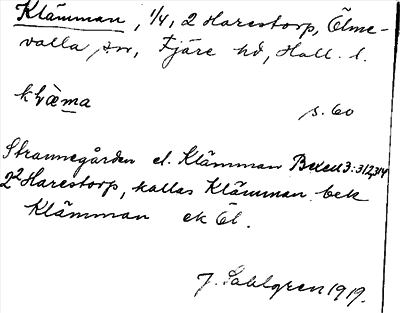 Klämman, 1/4, 2 Harestorp, Ölme-
valla sn, Fjäre hd, Hall. l.
klæ̀ma
s. 60
Strannegården el. Klämman Bexell 3:312,314
2² Harestorp, kallas Klämman bek
Klämman ek Öl.
J. Sahlgren 1919.